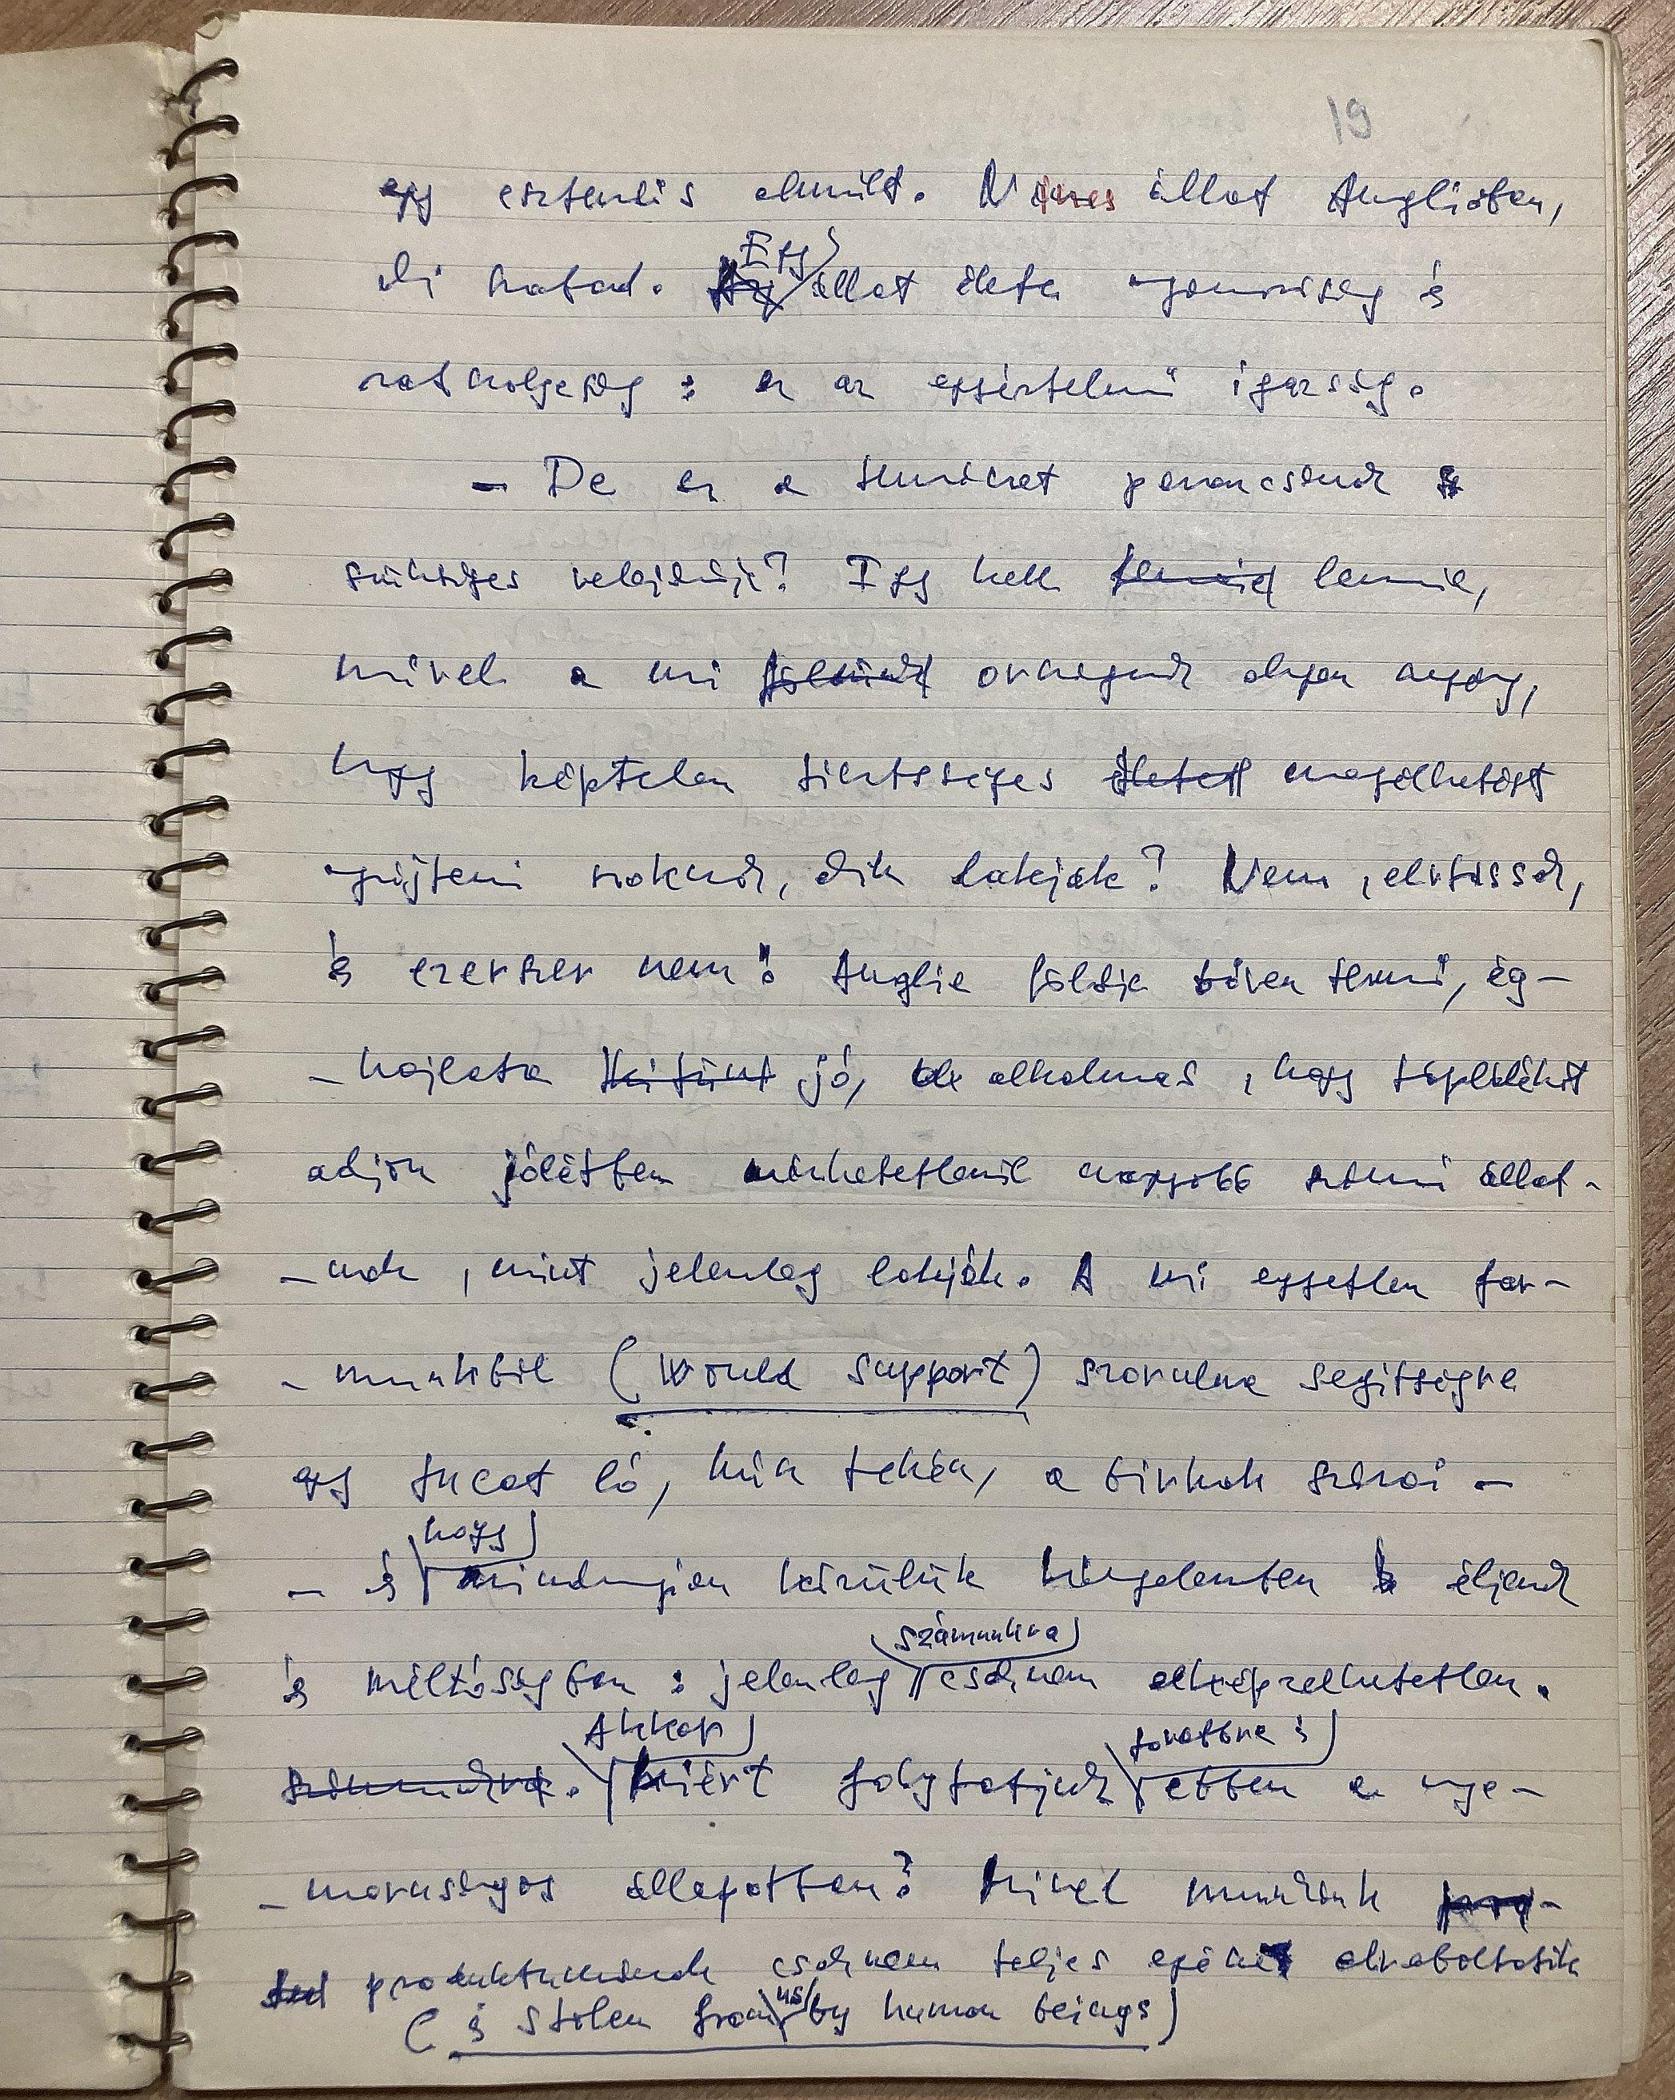 19
egy esztendős elmúlt. Nincs állat Angliában,
aki szabad. Egy állat élete nyomorúság és
rabszolgaság : ez az egyértelmű igazság.
- De ez a természet parancsának
szükséges velejárója? Így kell lennie,
mivel a mi országunk olyan
hogy képtelen tisztességes megélhetést
nyújtani azoknak, akik lakják? Nem, elvtársak,
és ezerszer nem! Anglia földje bőven termő, ég-
-hajlata jó, alkalmas, hogy táplálékot
adjon jólétben mérhetetlenül nagyobb számú állat-
-nak, mint jelenleg lakják. A mi egyetlen far-
-munkból (would support) szorulna segítségre
egy tucat ló, húsz tehén, a birkák százai -
- és hogy mindnyájan körülük kényelemben éljenek
és méltóságban : jelenleg számunkra csaknem elképzelhetetlen.
Akkor miért folytatjuk továbbra is ebben a nyo-
-morúságos állapotban? Mivel munkánk
produktumának csaknem teljes egészét elraboltatik
(is stolen from us by human beings)